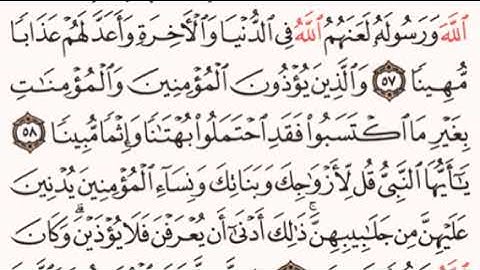 ٱللَّهَ وَرَسُولَهُۥ لَعَنَهُمُ ٱللَّهُ فِي ٱلدُّنۡيَا وَٱلۡأٓخِرَةِ وَأَعَدَّ لَهُمۡ عَذَابٗا
مُّهِينٗا ٥٧ وَٱلَّذِينَ يُؤۡذُونَ ٱلۡمُؤۡمِنِينَ وَٱلۡمُؤۡمِنَٰتِ
بِغَيۡرِ مَا ٱكۡتَسَبُواْ فَقَدِ ٱحۡتَمَلُواْ بُهۡتَٰنٗا وَإِثۡمٗا مُّبِينٗا ٥٨
يَٰٓأَيُّهَا ٱلنَّبِيُّ قُل لِّأَزۡوَٰجِكَ وَبَنَاتِكَ وَنِسَآءِ ٱلۡمُؤۡمِنِينَ يُدۡنِينَ
عَلَيۡهِنَّ مِن جَلَٰبِيبِهِنَّۚ ذَٰلِكَ أَدۡنَىٰٓ أَن يُعۡرَفۡنَ فَلَا يُؤۡذَيۡنَۗ وَكَانَ